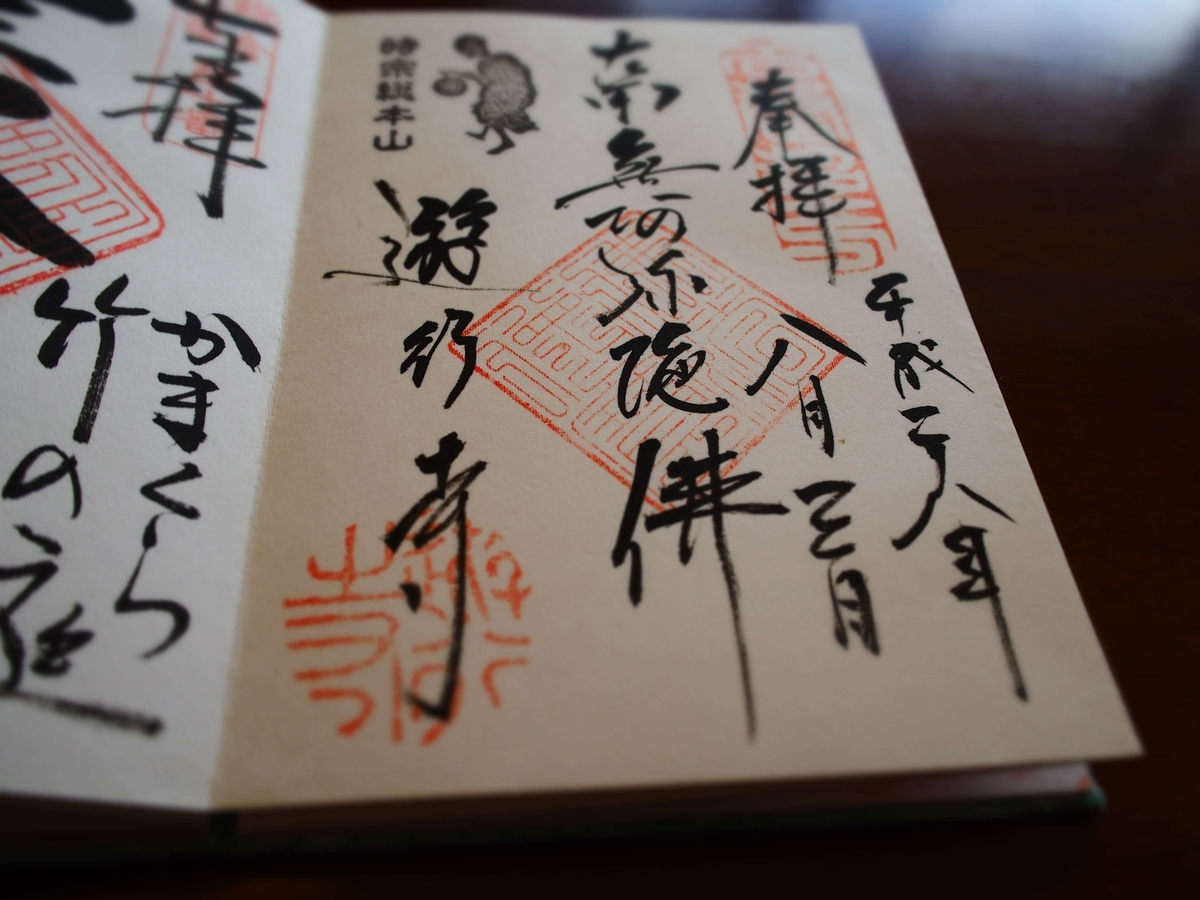 奉拝
平成二八年
八月三日
南無阿弥陀佛
時宗総本山
遊行寺
奉拝
かまくら
竹の庭